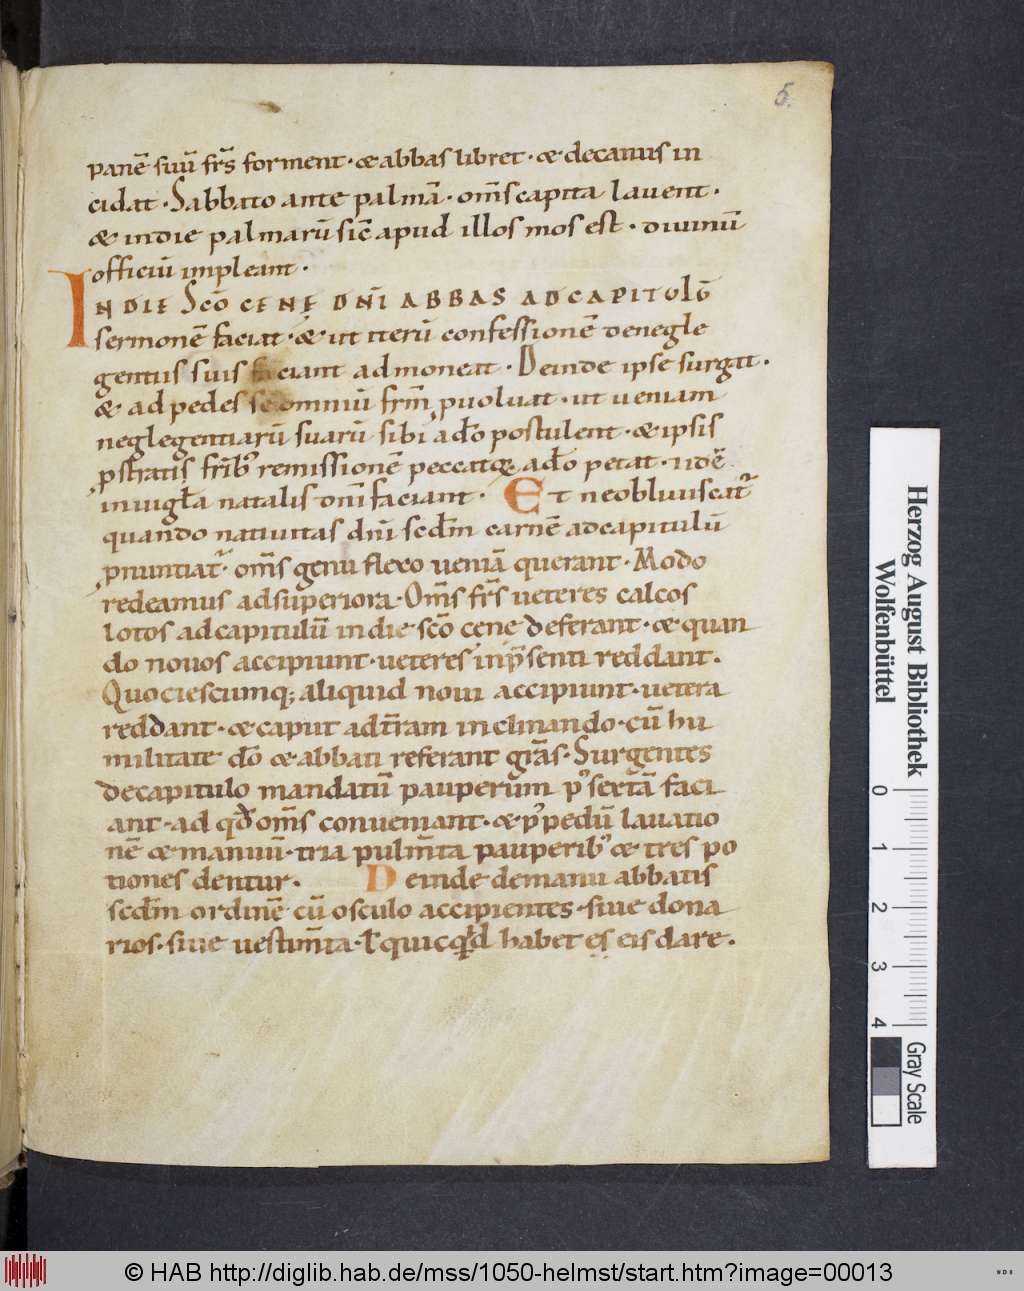 5.
panē suū fr̄s forment · & abbas libret · & decanus in
cidat · Sabbato ante palmā · om̄s capita lavent ·
& in die palmarū sic̄ apud illos mos est · divinū
officiū impleant ·
IN DIE Sc̄o CENĘ DN̄I ABBAS AD CAPITULŪ
sermonē faciat · & ut iterū confessionē de negle
gentiis suis faciant admoneat · Deinde ipse surgat ·
& ad pedes se omniū fr̄m ꝓvolvat · ut veniam
neglegentiarū suarū sibi a dō postulent · & ipsis
ꝓstratis frib᾿ remissionē peccatoꝝ a dō petat · idē
in vigła natalis dn̄i faciant · Et ne obliviscat᾿
quando nativitas dn̄i scdm̄ carnē ad capitulū
ꝓnuntiat᾿ · om̄s genu flexo veniā querant · Modo
redeamus ad superiora · Om̄s fr̄s veteres calcos
lotos ad capitulū in die sc̄o cenę deferant · & quan
do novos accipiunt · veteres in p̄senti reddant ·
Quociescumq; aliquid novi accipiunt · vetera
reddant · & caput ad tr̄am inclinando · cū hu
militate dō & abbati referant gr̄as · Surgentes
de capitulo mandatū pauperum p᾿ sextā faci
ant · ad qđ om̄s conveniant · & p᾿ pedū lavatio
nē & manuū · tria pulm̄ta pauperib᾿ & tres po
tiones dentur · Deinde de manu abbatis
scdm̄ ordinē cū osculo accipientes · sive dena
rios · sive vestim̄ta · ł quicqđ habet es eis dare ·
Herzog August Bibliothek
Wolfenbüttel
0 1 2 3 4
Gray Scale
© HAB http://diglib.hab.de/mss/1050-helmst/start.htm?image=00013